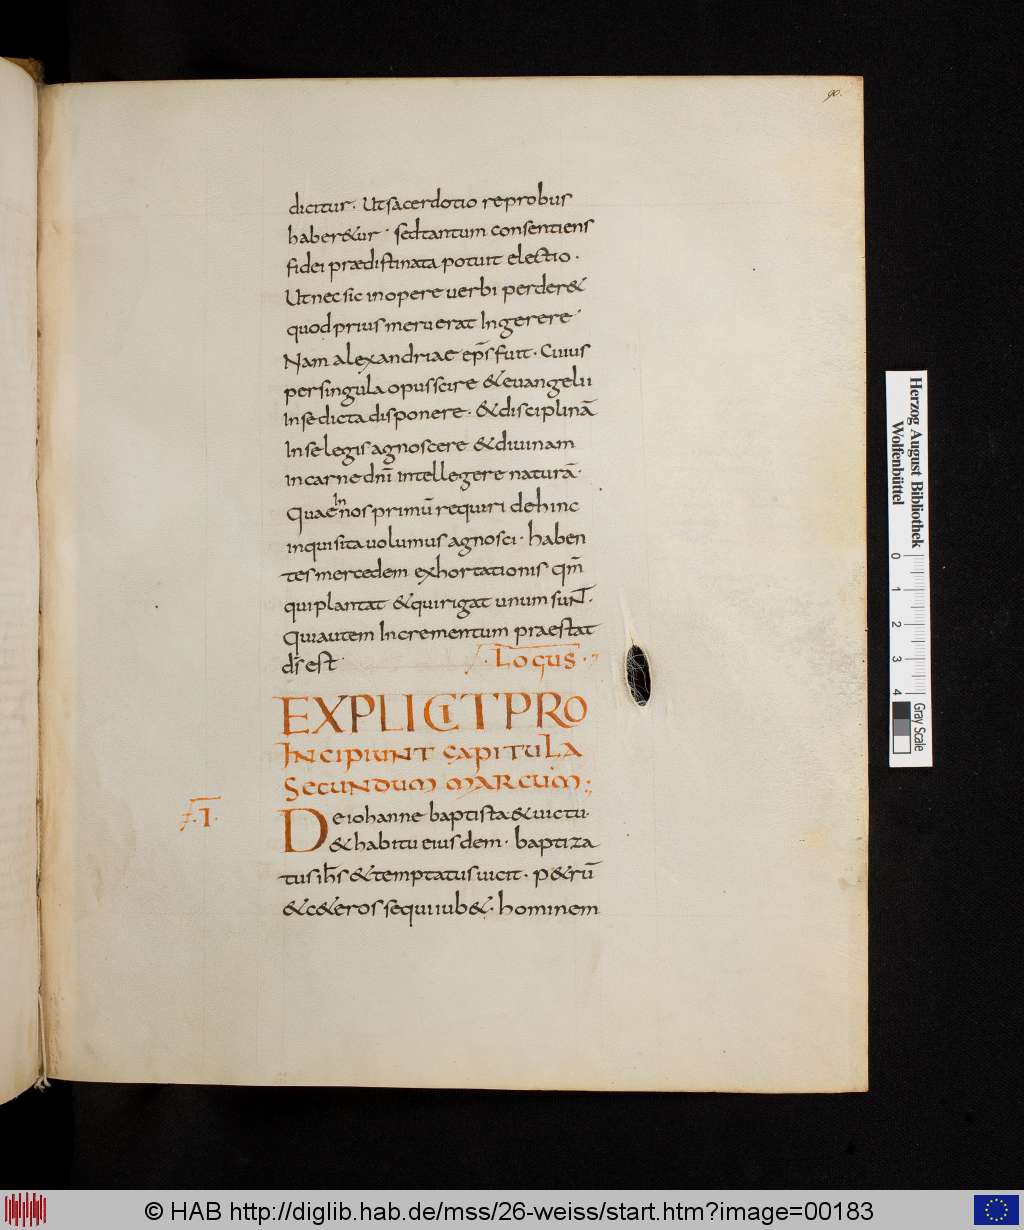 90.
dicitur. Ut sacerdotio reprobus
haber&ur. sed tantum consentiens
fidei prædistinata potuit electio.
Ut nec sic in opere uerbi perder&
quod prius meruerat Ingerere
Nam alexandriae ep̄s fuit. Cuius
per singula opus scire & euangelii
In se dicta disponere. & disciplinā
In se legis agnoscere & diuinam
in carne dn̄i intellegere naturā.
Quae In nos primū requiri dehinc
inquisita uolumus agnosci. haben
tes mercedem exhortationis qm̄
qui plantat & qui rigat unum sunt.
Qui autem Incrementum praestat
ds̄ est
.Locus.
EXPLICIT PRO
INCIPIUNT CAPITULA
SECUNDUM MARCUM;
.I.
De iohanne baptista & uictu.
& habitu eius dem. baptiza
tus ih̄s & temptatus uicit. p&rū
& c&eros sequi iub&. hominem
Herzog August Bibliothek
Wolfenbüttel
0 1 2 3 4
Gray Scale
© HAB http://diglib.hab.de/mss/26-weiss/start.htm?image=00183